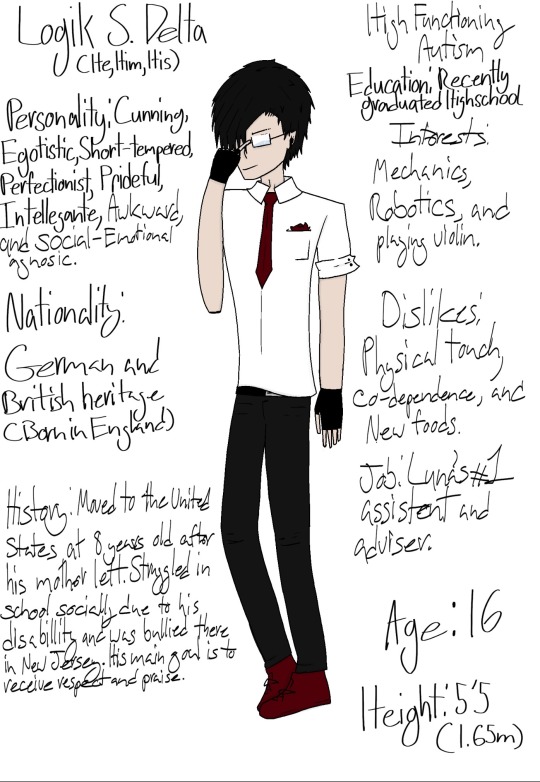 Logik S. Delta
(He, Him, His)
Personality: Cunning,
Egotistic, Short-tempered,
Perfectionist, Prideful,
Intellegante, Awkward,
and Social-Emotional
agnosic.
Nationality:
German and
British heritage
(Born in England)
History: Moved to the United
States at 8 years old after
his mother left. Struggled in
school socially due to his
disabillity and was bullied there
in New Jersey. His main goal is to
receive respect and praise.
High Functioning
Autism
Education: Recently
graduated Highschool
Interests:
Mechanics,
Robotics, and
playing violin.
Dislikes:
Physical touch,
Co-dependence, and
New foods.
Job: Luna's #1
assistent and
adviser.
Age: 16
Height: 5'5
(1.65m)